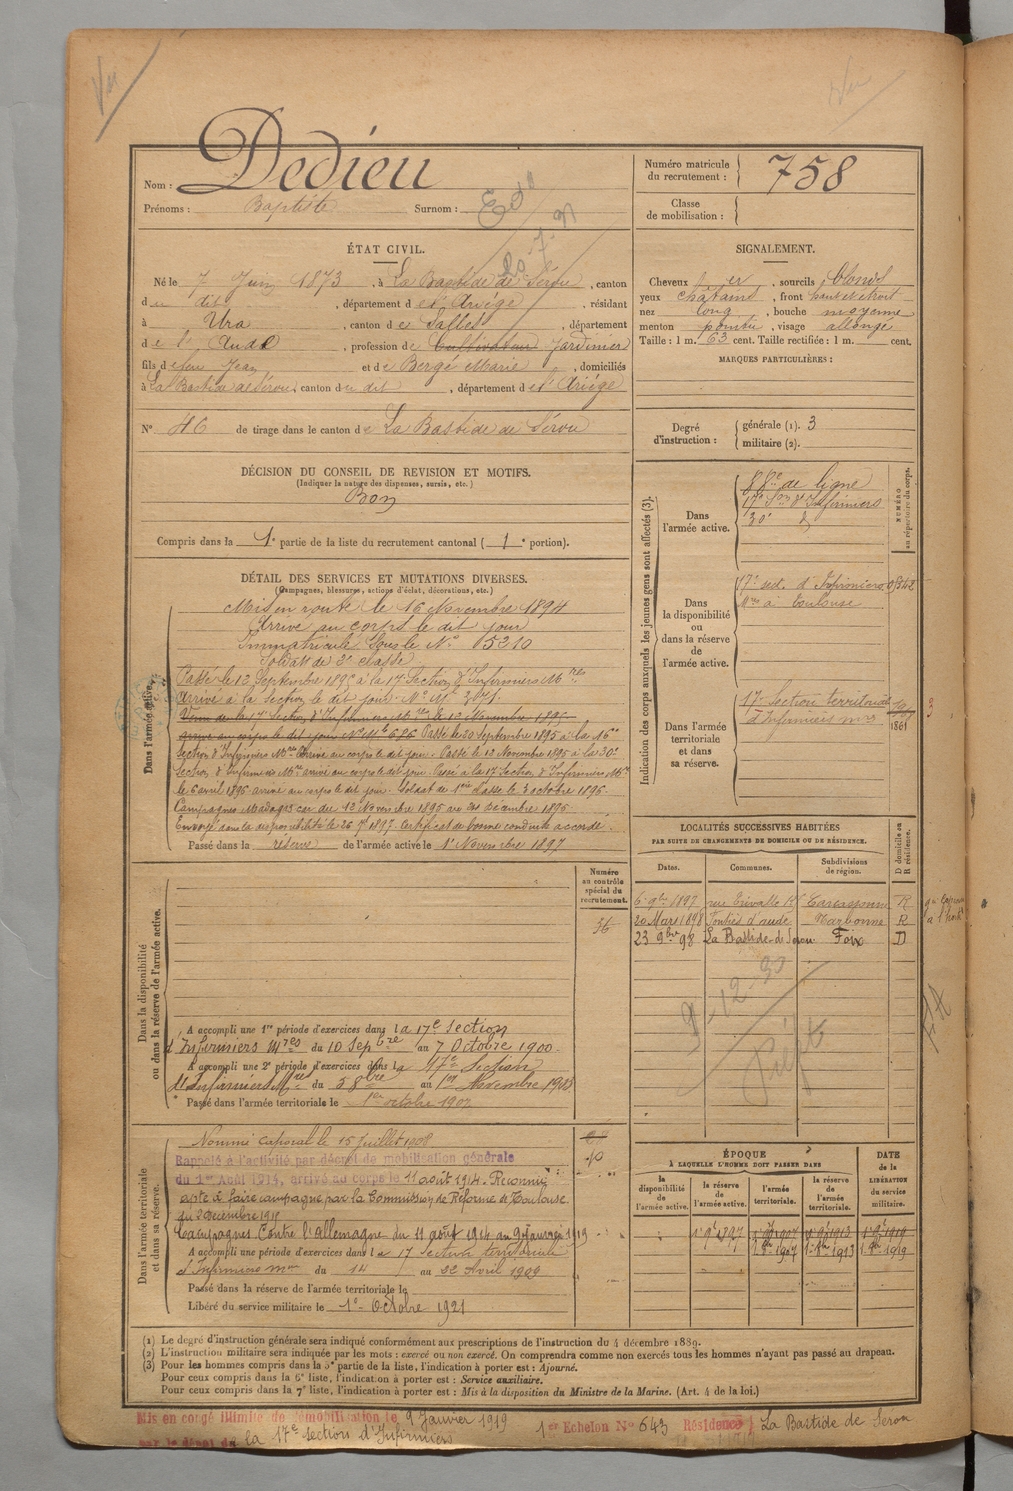 Vu
Dedieu
Nom :
Prénoms : Baptiste Surnom :
Numéro matricule du recrutement : 758
Classe de mobilisation :
ÉTAT CIVIL.
Né le 7 Juin 1873, à La Bastide de Sérou, canton
du dit, département de l'Ariège, résidant
à , canton de Salles, département
de l'Aude, profession de Cultivateur Jardinier
fils de feu Jean et de Bergé Marie, domiciliés
à La Bastide de Sérou, canton du dit, département de l'Ariège
N° 46 de tirage dans le canton de La Bastide de Sérou
SIGNALEMENT.
Cheveux , sourcils blonds
yeux châtains, front haut et étroit
nez long, bouche moyenne
menton pointu, visage allongé
Taille : 1 m. 63 cent. Taille rectifiée : 1 m. cent.
MARQUES PARTICULIÈRES :
Degré d'instruction : générale (1). 3
militaire (2).
DÉCISION DU CONSEIL DE REVISION ET MOTIFS.
(Indiquer la nature des dispenses, sursis, etc.)
Bon
Compris dans la 1e partie de la liste du recrutement cantonal (1e portion).
DÉTAIL DES SERVICES ET MUTATIONS DIVERSES.
(Campagnes, blessures, actions d'éclat, décorations, etc.)
Dans l'armée active.
Mis en route le 16 Novembre 1894
Arrivé au corps le dit jour
Immatriculé sous le N° 05210
Soldat de 2e classe
Passé le 12 Septembre 1895 à la 17e Section d'Infirmiers Mres
Arrivé à la section le dit jour. N° Mle
Venu de la 17e Section d'Infirmiers Mres le 12 Novembre 1895
arrivé au corps le dit jour N° Mle 626 Passé le 20 Septembre 1895 à la 16e
Section d'Infirmiers Mres Arrivé au corps le dit jour. Passé le 12 Novembre 1895 à la 30e
Section d'Infirmiers Mres arrivé au corps le dit jour. Passé à la 17e Section d'Infirmiers Mres
le 6 avril 1896 arrivé au corps le dit jour. Soldat de 1ere classe le 3 octobre 1896.
Campagnes Madagascar du 12 Novembre 1895 au décembre 1895
Envoyé dans la disponibilité le 26 7bre 1897. Certificat de bonne conduite accordé.
Passé dans la réserve de l'armée active le 1er Novembre 1897
Indication des corps auxquels les jeunes gens sont affectés (3).
NUMÉRO au répertoire du corps.
Dans l'armée active.
88e de ligne
17e Son d'Infirmiers
30e d°
Dans la disponibilité ou dans la réserve de l'armée active.
17e sect. d'Infirmiers
Mres à Toulouse
Dans l'armée territoriale et dans sa réserve.
17e Section territoriale
d'Infirmiers mres
1861
3
LOCALITÉS SUCCESSIVES HABITÉES
PAR SUITE DE CHANGEMENTS DE DOMICILE OU DE RÉSIDENCE.
Dates. Communes. Subdivisions de région. D domicile ou R résidence.
6 9bre 1897 rue Trivalle Carcassonne R
20 Mars 1898 d'Aude Narbonne R
23 9bre 98 La Bastide-de Sérou Foix D
9-12-30
Préfet
Numéro au contrôle spécial du recrutement.
36
Dans la disponibilité ou dans la réserve de l'armée active.
A accompli une 1re période d'exercices dans la 17e Section
d'Infirmiers Mres du 10 Sepbre au 7 Octobre 1900.
A accompli une 2e période d'exercices dans la 17e Section
d'Infirmiers Mre du 5 8bre au 1er Novembre
Passé dans l'armée territoriale le 1er octobre 1907
Dans l'armée territoriale et dans sa réserve.
Nommé caporal le 15 Juillet 1908
Rappelé à l'activité par décret de mobilisation générale
du 1er Août 1914, arrivé au corps le 11 août 1914. Reconnu
apte à faire campagne par la Commission de Réforme de Toulouse
du 2 Décembre
Campagnes Contre l'Allemagne du 11 août 1914 au 9 Janvier 1919
A accompli une période d'exercices dans la 17e Section territoriale
d'Infirmiers mres du 14 au 22 Avril 1909
Passé dans la réserve de l'armée territoriale le
Libéré du service militaire le 1er Octobre 1921
ÉPOQUE
À LAQUELLE L'HOMME DOIT PASSER DANS
DATE de la LIBÉRATION du service militaire.
la disponibilité de l'armée active. la réserve de l'armée active. l'armée territoriale. la réserve de l'armée territoriale.
1er 9bre 1897 1er 9bre 1907 1er 9bre 1913 1er 9bre 1919
1er 8bre 1907 1er 8bre 1913 1er 8bre 1919
(1) Le degré d'instruction générale sera indiqué conformément aux prescriptions de l'instruction du 4 décembre 1889.
(2) L'instruction militaire sera indiquée par les mots : exercé ou non exercé. On comprendra comme non exercés tous les hommes n'ayant pas passé au drapeau.
(3) Pour les hommes compris dans la 5e partie de la liste, l'indication à porter est : Ajourné.
Pour ceux compris dans la 6e liste, l'indication à porter est : Service auxiliaire.
Pour ceux compris dans la 7e liste, l'indication à porter est : Mis à la disposition du Ministre de la Marine. (Art. 4 de la loi.)
Mis en congé illimité de démobilisation le 9 Janvier 1919 1er Echelon N° 643 Résidence La Bastide de Sérou
par le dépôt de la 17e section d'Infirmiers